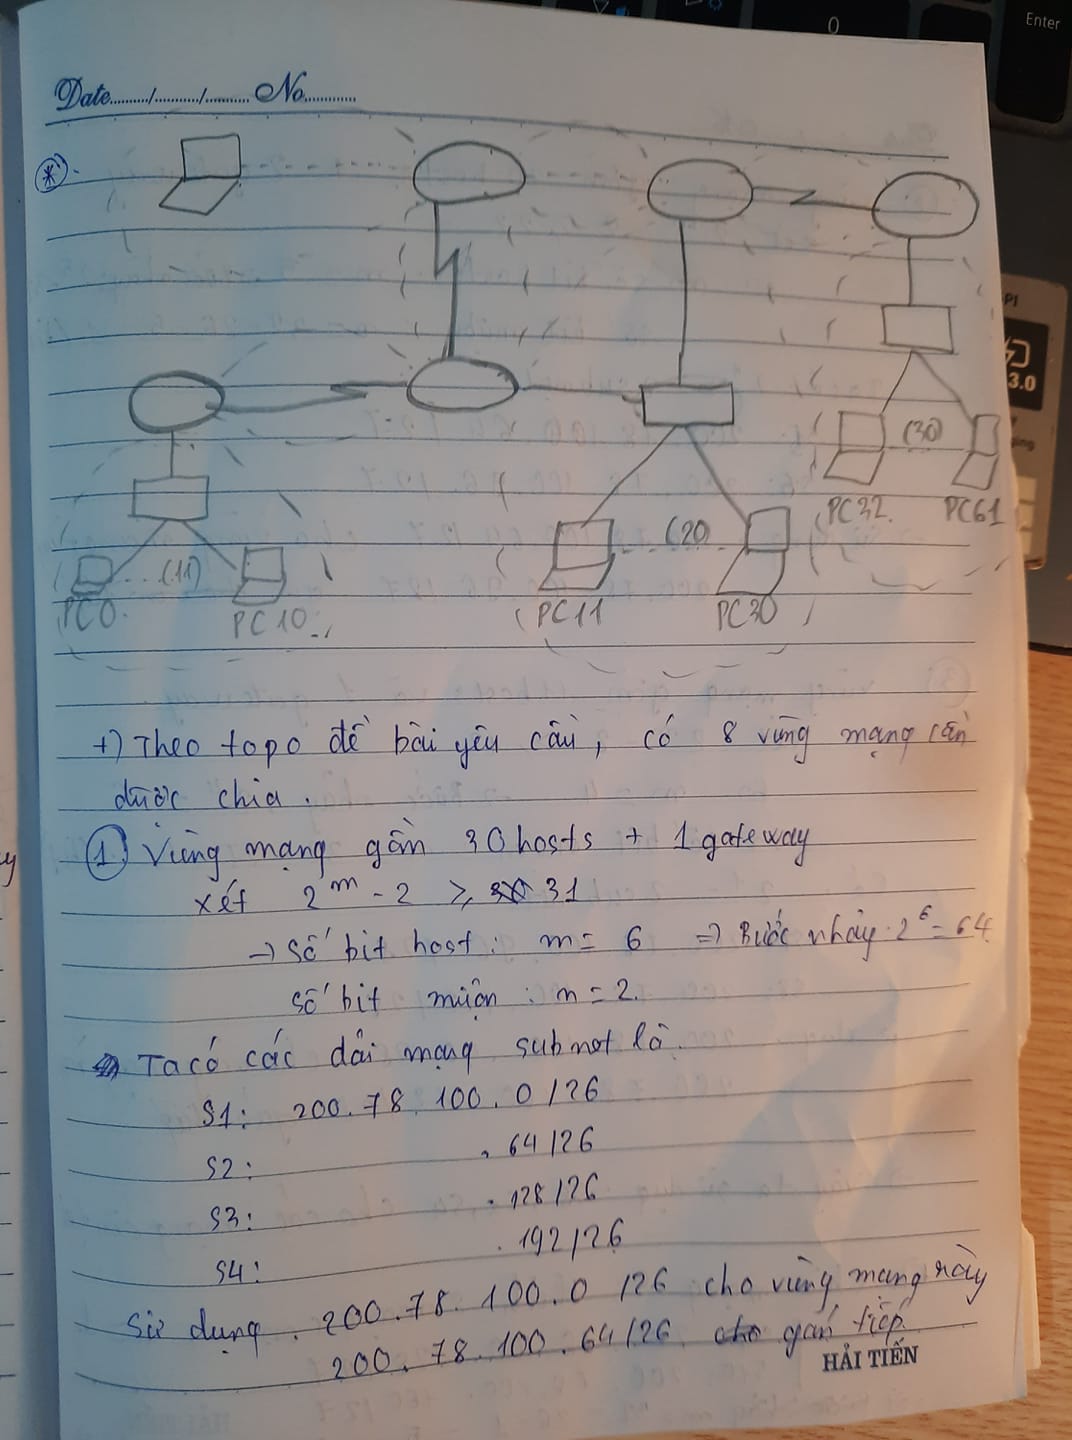 Date......../......../........ No............
*
(11)
PC0
PC10
(20)
PC11
PC30
(30)
PC32
PC61
+) Theo topo đề bài yêu cầu, có 8 vùng mạng cần
được chia.
1) Vùng mạng gồm 30 hosts + 1 gateway
xét 2^m - 2 ≥ 31
→ Số bit host: m = 6 ⇒ Bước nhảy 2^6 = 64
số bit mượn : n = 2.
Ta có các dải mạng subnet là.
S1: 200.78.100.0/26
S2: .64/26
S3: .128/26
S4: .192/26
Sử dụng. 200.78.100.0/26 cho vùng mạng này
200.78.100.64/26 cho gán tiếp
HẢI TIẾN
Enter
3.0